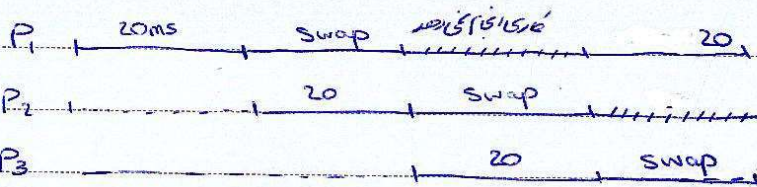 P1 20ms swap کاری انجام نمی‌دهد 20
P2 20 swap
P3 20 swap